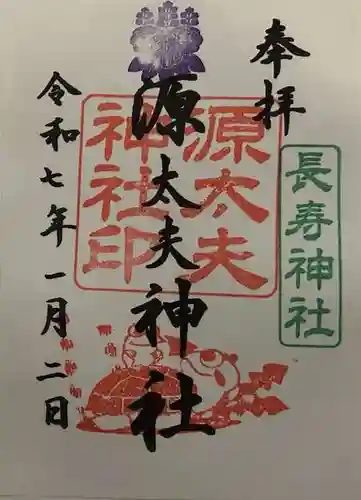 奉拝
長寿神社
源太夫神社
源太夫
神社印
令和七年一月二日